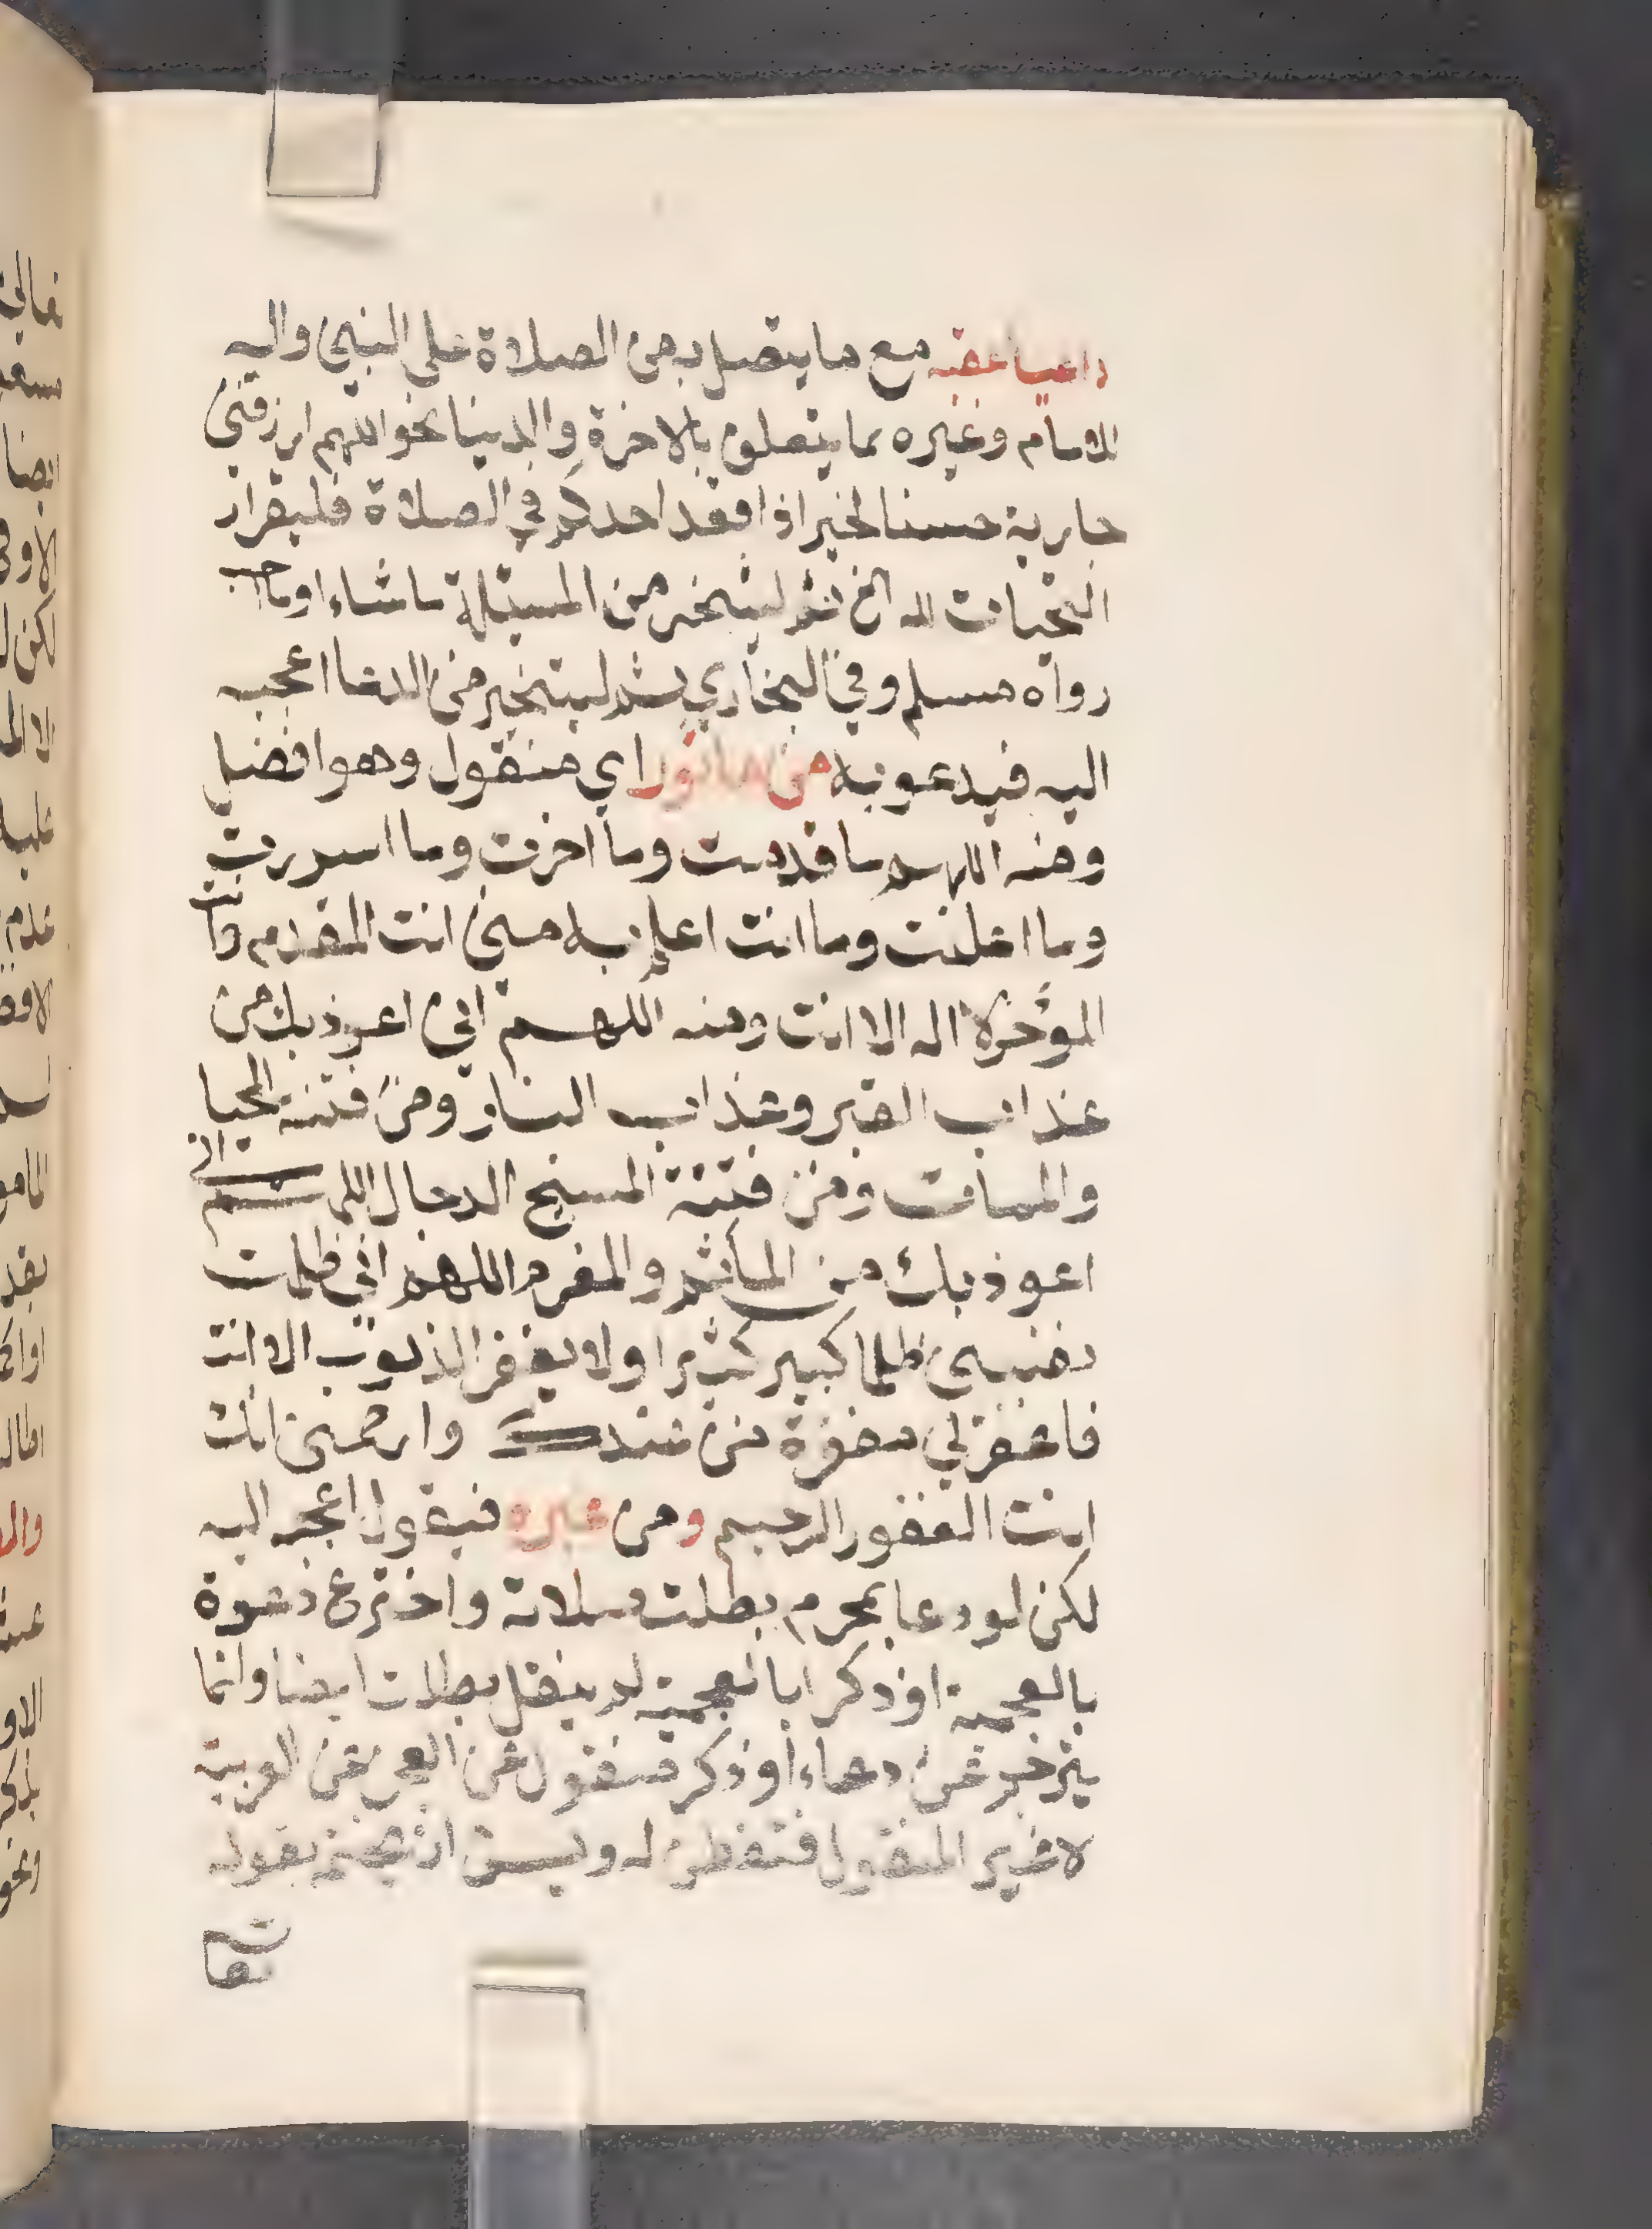 داعيا عقبه مع ما يتصل به من الصلاة على النبي واله
للامام وغيره بما يتعلق بالاخرة والدينا نحو اللهم ارزقني
جارية حسنا لخبر اذا قعد احدكم في الصلاة فليقرا
التحيات لله الخ ثم ليتخير من المسئلة ما شاء او ما احب
رواه مسلم وفي البخاري ثم ليتخير من الدعا اعجبه
اليه فيدعو به من ماثور اي منقول وهو افضل
ومنه اللهم ما قدمت وما اخرت وما اسررت
وما اعلنت وما انت اعلم به مني انت المقدم وانت
المؤخر لا اله الا انت ومنه اللهم اني اعوذ بك من
عذاب القبر وعذاب النار ومن فتنة المحيا
والممات ومن فتنة المسيح الدجال اللهم اني
اعوذ بك من الماثم والمغرم اللهم اني ظلمت
نفسي ظلما كبير كثيرا ولا يغفر الذنوب الا انت
فاغفر لي مغفرة من عندك وارحمني انك
انت الغفور الرحيم ومن غيره فيقول اعجبه اليه
لكن لو دعا بمحرم بطلت صلاته واخترع دعوة
بالعجمية او ذكرا بالعجمية لم ينقل بطلت ايضا وانما
يترجم عن دعاء او ذكر منقول عن العجز عن العربية
لا غير المنقول فتفطن له ويسن ان يجمع بقوله